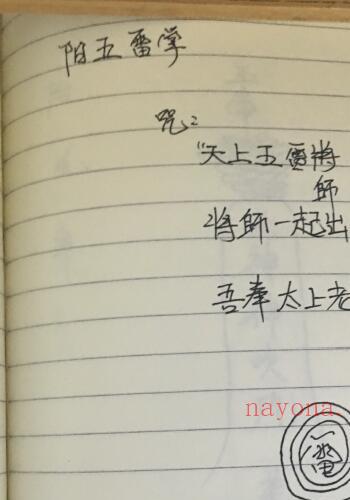 附五雷掌
咒:
"天上五雷將
師
將師一起出
吾奉太上老
nayona
雷